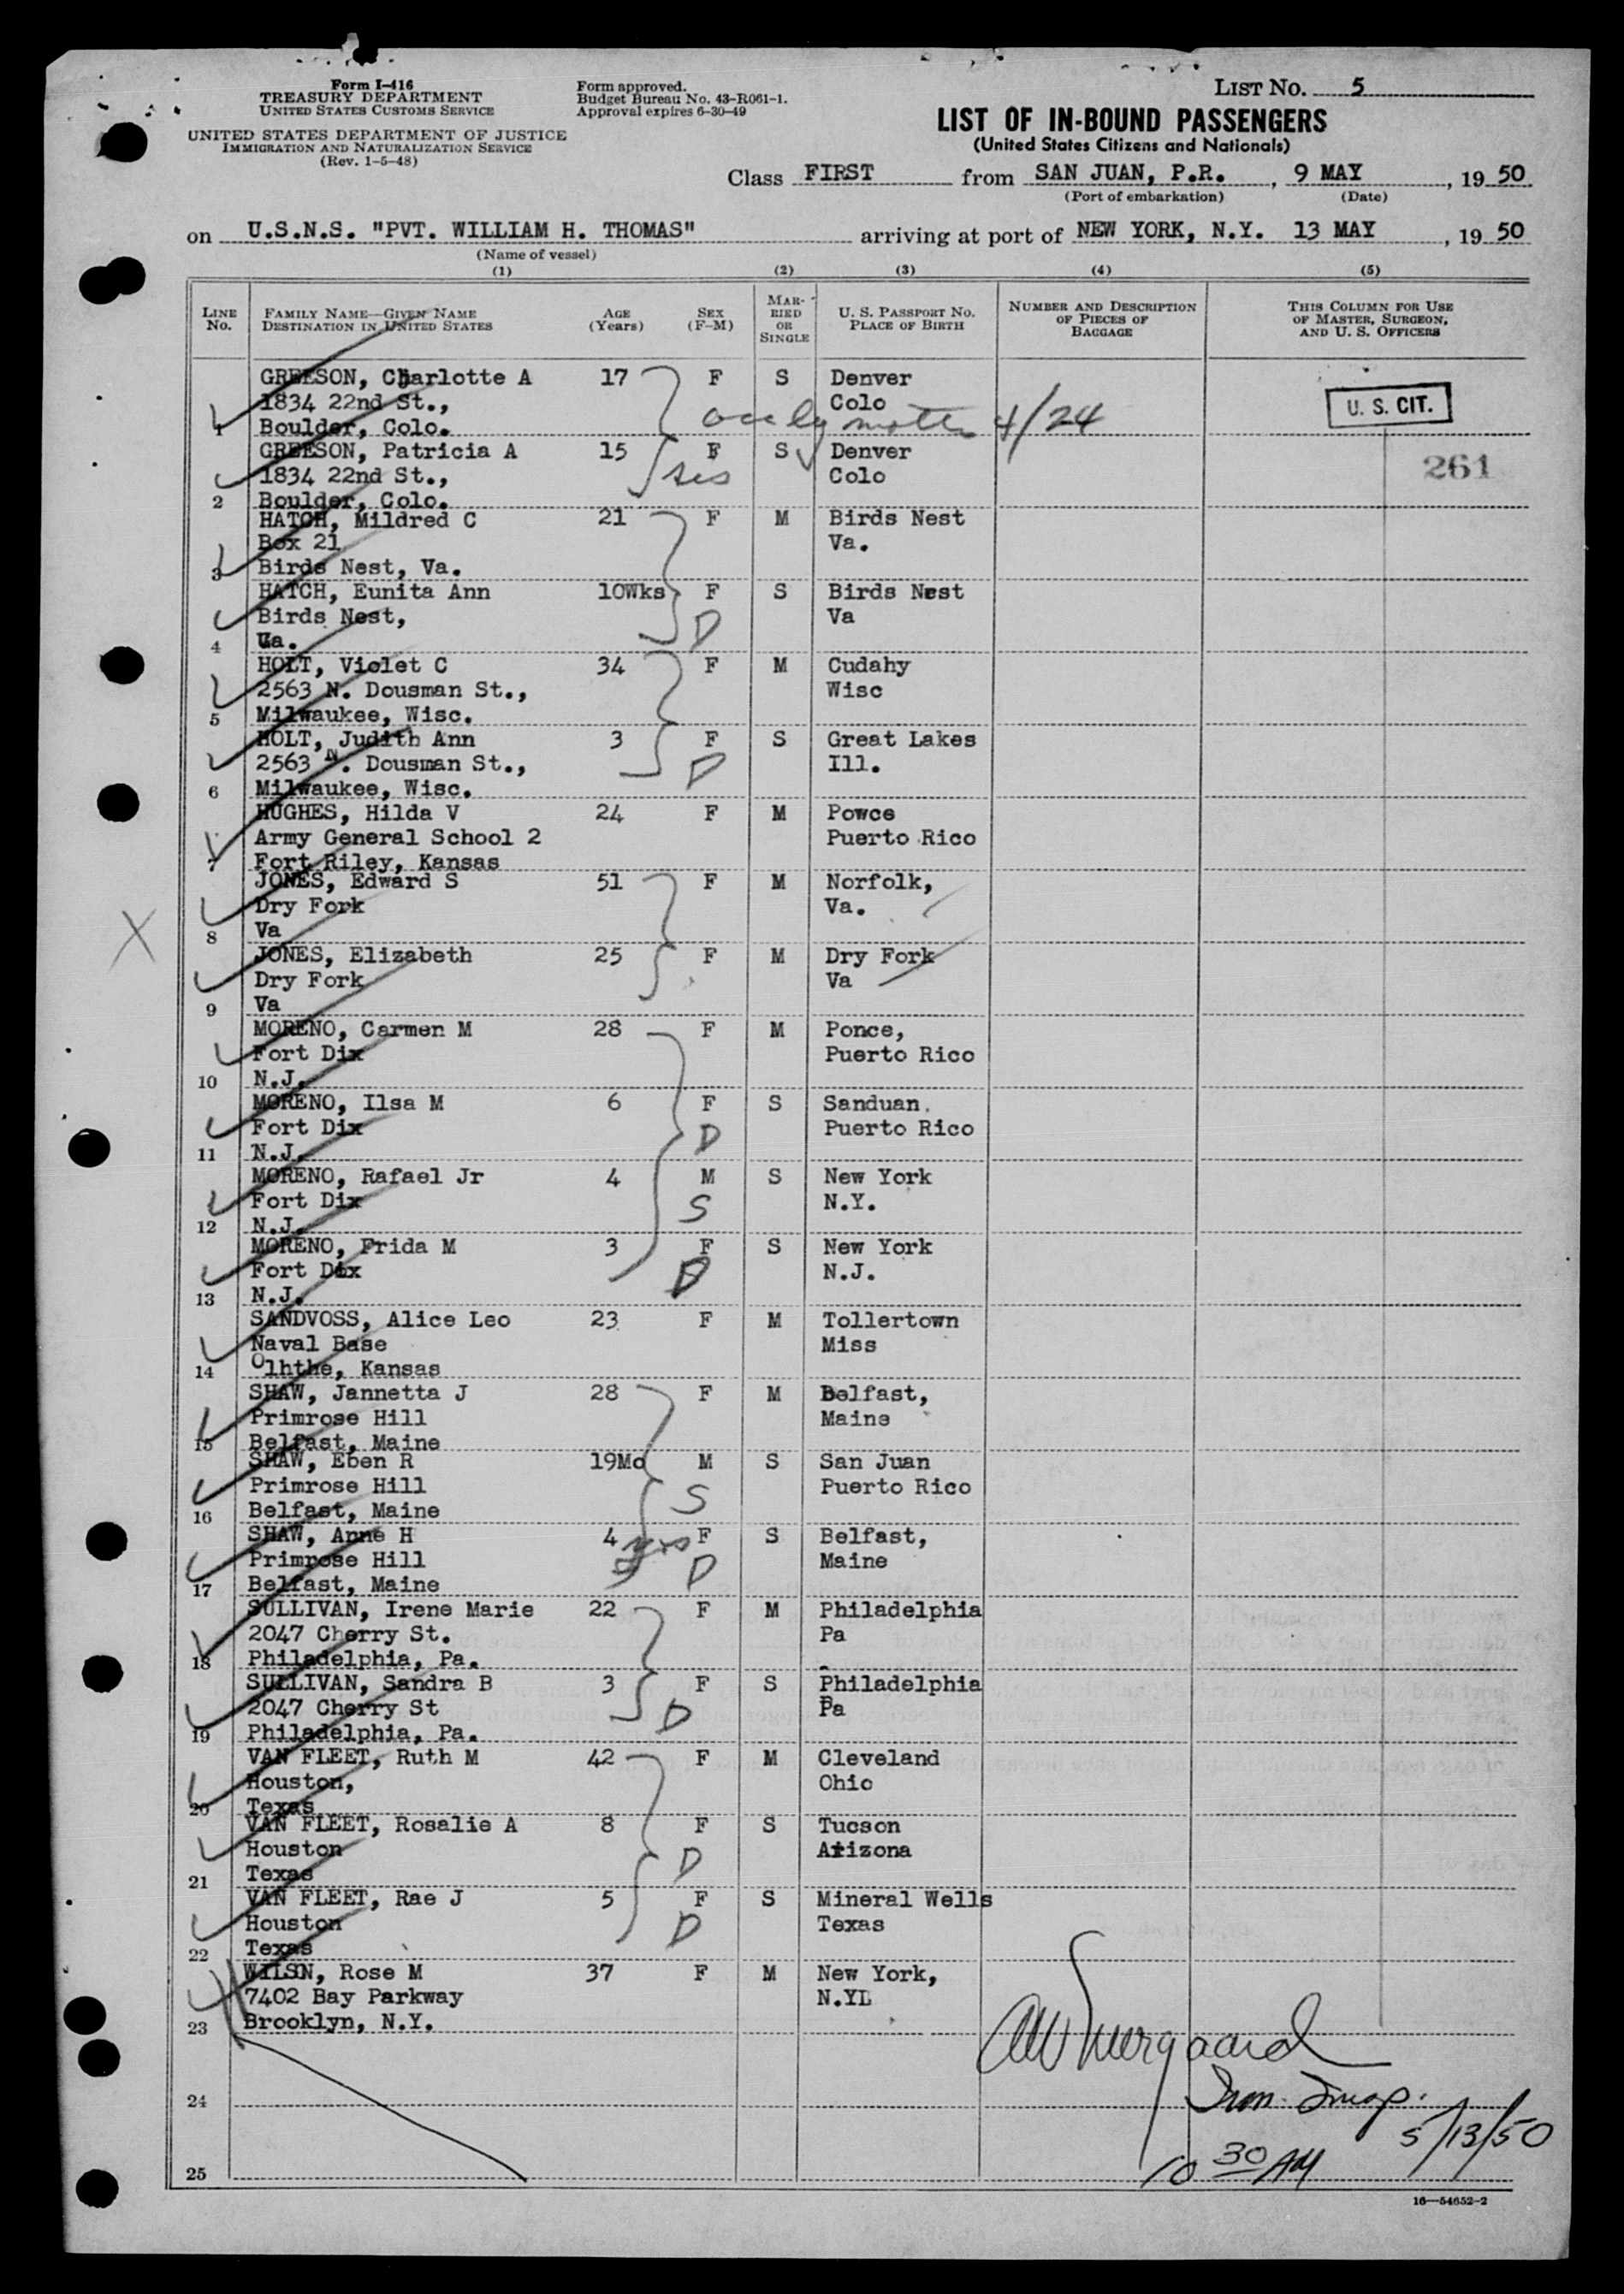 Form I-416
TREASURY DEPARTMENT
UNITED STATES CUSTOMS SERVICE
UNITED STATES DEPARTMENT OF JUSTICE
IMMIGRATION AND NATURALIZATION SERVICE
(Rev. 1-5-48)
Form approved.
Budget Bureau No. 43-R061-1.
Approval expires 6-30-49
LIST NO. 5
LIST OF IN-BOUND PASSENGERS
(United States Citizens and Nationals)
Class FIRST from SAN JUAN, P.R., 9 MAY, 1950
(Port of embarkation) (Date)
on U.S.N.S. "PVT. WILLIAM H. THOMAS" arriving at port of NEW YORK, N.Y. 13 MAY, 1950
(Name of vessel)
(1) (2) (3) (4) (5)
LINE NO. FAMILY NAME—GIVEN NAME DESTINATION IN UNITED STATES AGE (Years) SEX (F-M) MARRIED OR SINGLE U. S. PASSPORT NO. PLACE OF BIRTH NUMBER AND DESCRIPTION OF PIECES OF BAGGAGE THIS COLUMN FOR USE OF MASTER, SURGEON, AND U. S. OFFICERS
GREESON, Charlotte A 17 F S Denver
1834 22nd St., Colo U. S. CIT.
1 Boulder, Colo. mother 4/24
GREESON, Patricia A 15 F S Denver 261
1834 22nd St., sis Colo
2 Boulder, Colo.
HATCH, Mildred C 21 F M Birds Nest
Box 21 Va.
3 Birds Nest, Va.
HATCH, Eunita Ann 10Wks F S Birds Nest
Birds Nest, D Va
4 Va.
HOLT, Violet C 34 F M Cudahy
2563 N. Dousman St., Wisc
5 Milwaukee, Wisc.
HOLT, Judith Ann 3 F S Great Lakes
2563 N. Dousman St., D Ill.
6 Milwaukee, Wisc.
HUGHES, Hilda V 24 F M Powce
Army General School 2 Puerto Rico
7 Fort Riley, Kansas
JONES, Edward S 51 F M Norfolk,
Dry Fork Va.
8 Va
X
JONES, Elizabeth 25 F M Dry Fork
Dry Fork Va
9 Va
MORENO, Carmen M 28 F M Ponce,
Fort Dix Puerto Rico
10 N.J.
MORENO, Ilsa M 6 F S Sanduan
Fort Dix D Puerto Rico
11 N.J.
MORENO, Rafael Jr 4 M S New York
Fort Dix S N.Y.
12 N.J.
MORENO, Frida M 3 F S New York
Fort Dix D N.J.
13 N.J.
SANDVOSS, Alice Leo 23 F M Tollertown
Naval Base Miss
14 Olhthe, Kansas
SHAW, Jannetta J 28 F M Belfast,
Primrose Hill Maine
15 Belfast, Maine
SHAW, Eben R 19Mo M S San Juan
Primrose Hill S Puerto Rico
16 Belfast, Maine
SHAW, Anne H 4 yrs F S Belfast,
Primrose Hill D Maine
17 Belfast, Maine
SULLIVAN, Irene Marie 22 F M Philadelphia
2047 Cherry St. Pa
18 Philadelphia, Pa.
SULLIVAN, Sandra B 3 F S Philadelphia
2047 Cherry St D Pa
19 Philadelphia, Pa.
VAN FLEET, Ruth M 42 F M Cleveland
Houston, Ohio
20 Texas
VAN FLEET, Rosalie A 8 F S Tucson
Houston D Arizona
21 Texas
VAN FLEET, Rae J 5 F S Mineral Wells
Houston D Texas
22 Texas
WILSN, Rose M 37 F M New York,
7402 Bay Parkway N.Y.
23 Brooklyn, N.Y.
24 Imm. Insp.
5/13/50
25 10 30 AM
16—54652-2